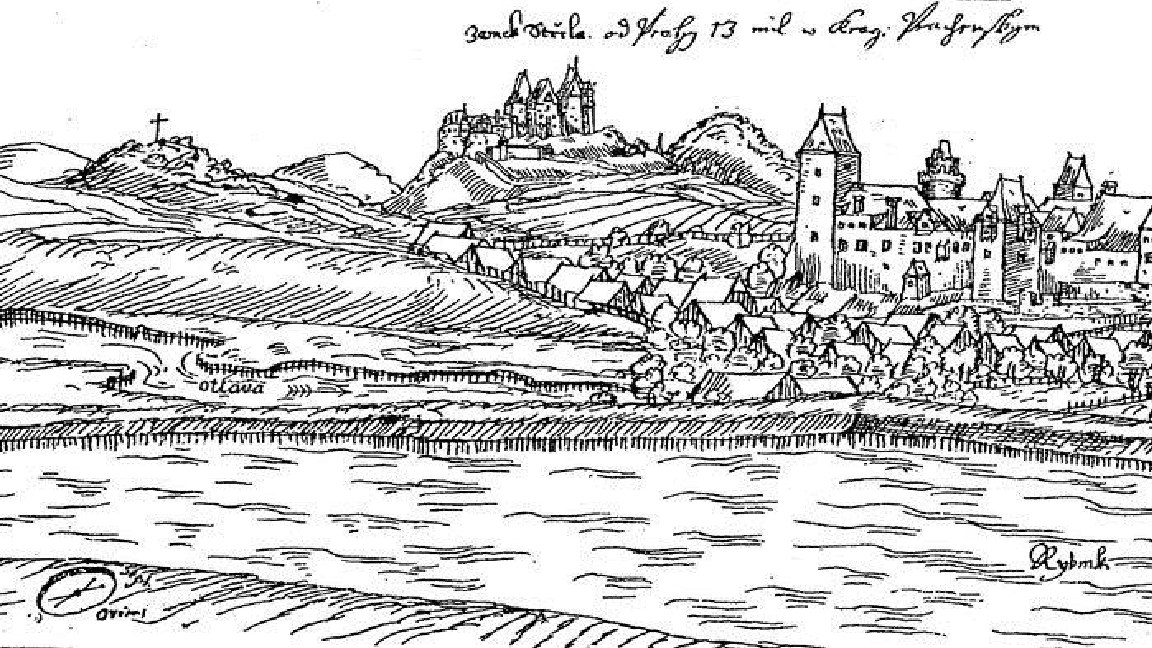 Zamek Střela. od Prahy 13 mil w Krag: Prachenskym
otava
Rybnik
Oriens